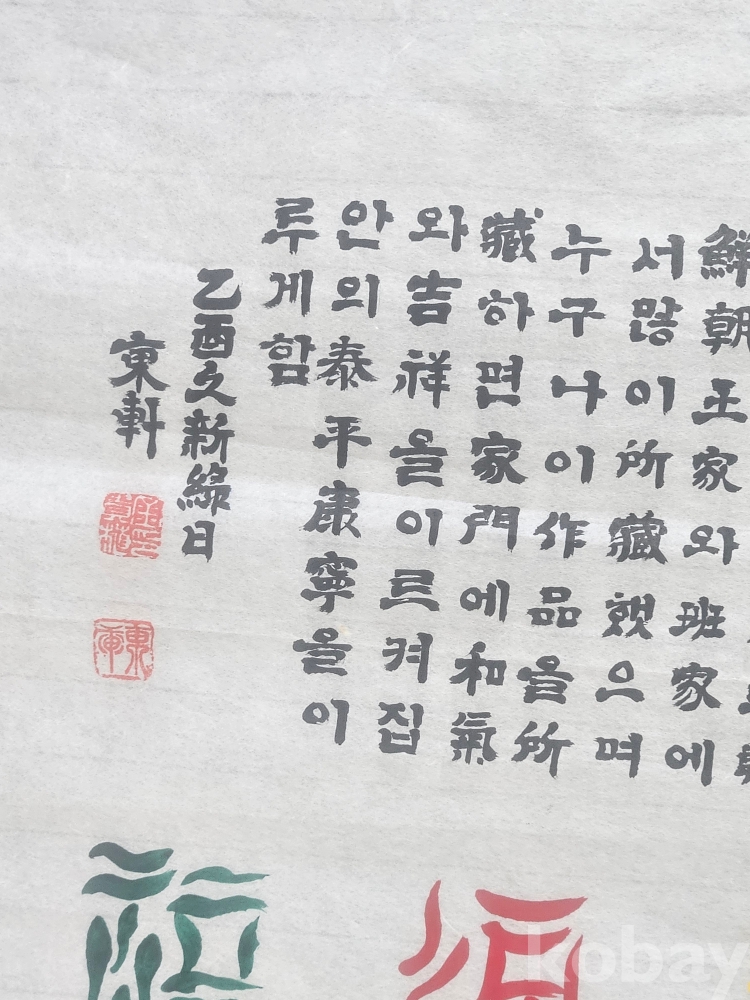 鮮朝王家와班家에
서많이所藏했으며
누구나이作品을所
藏하면家門에和氣
와吉祥을이르켜집
안의泰平康寧을이
루게함
乙酉之新綠日
東軒
kobay